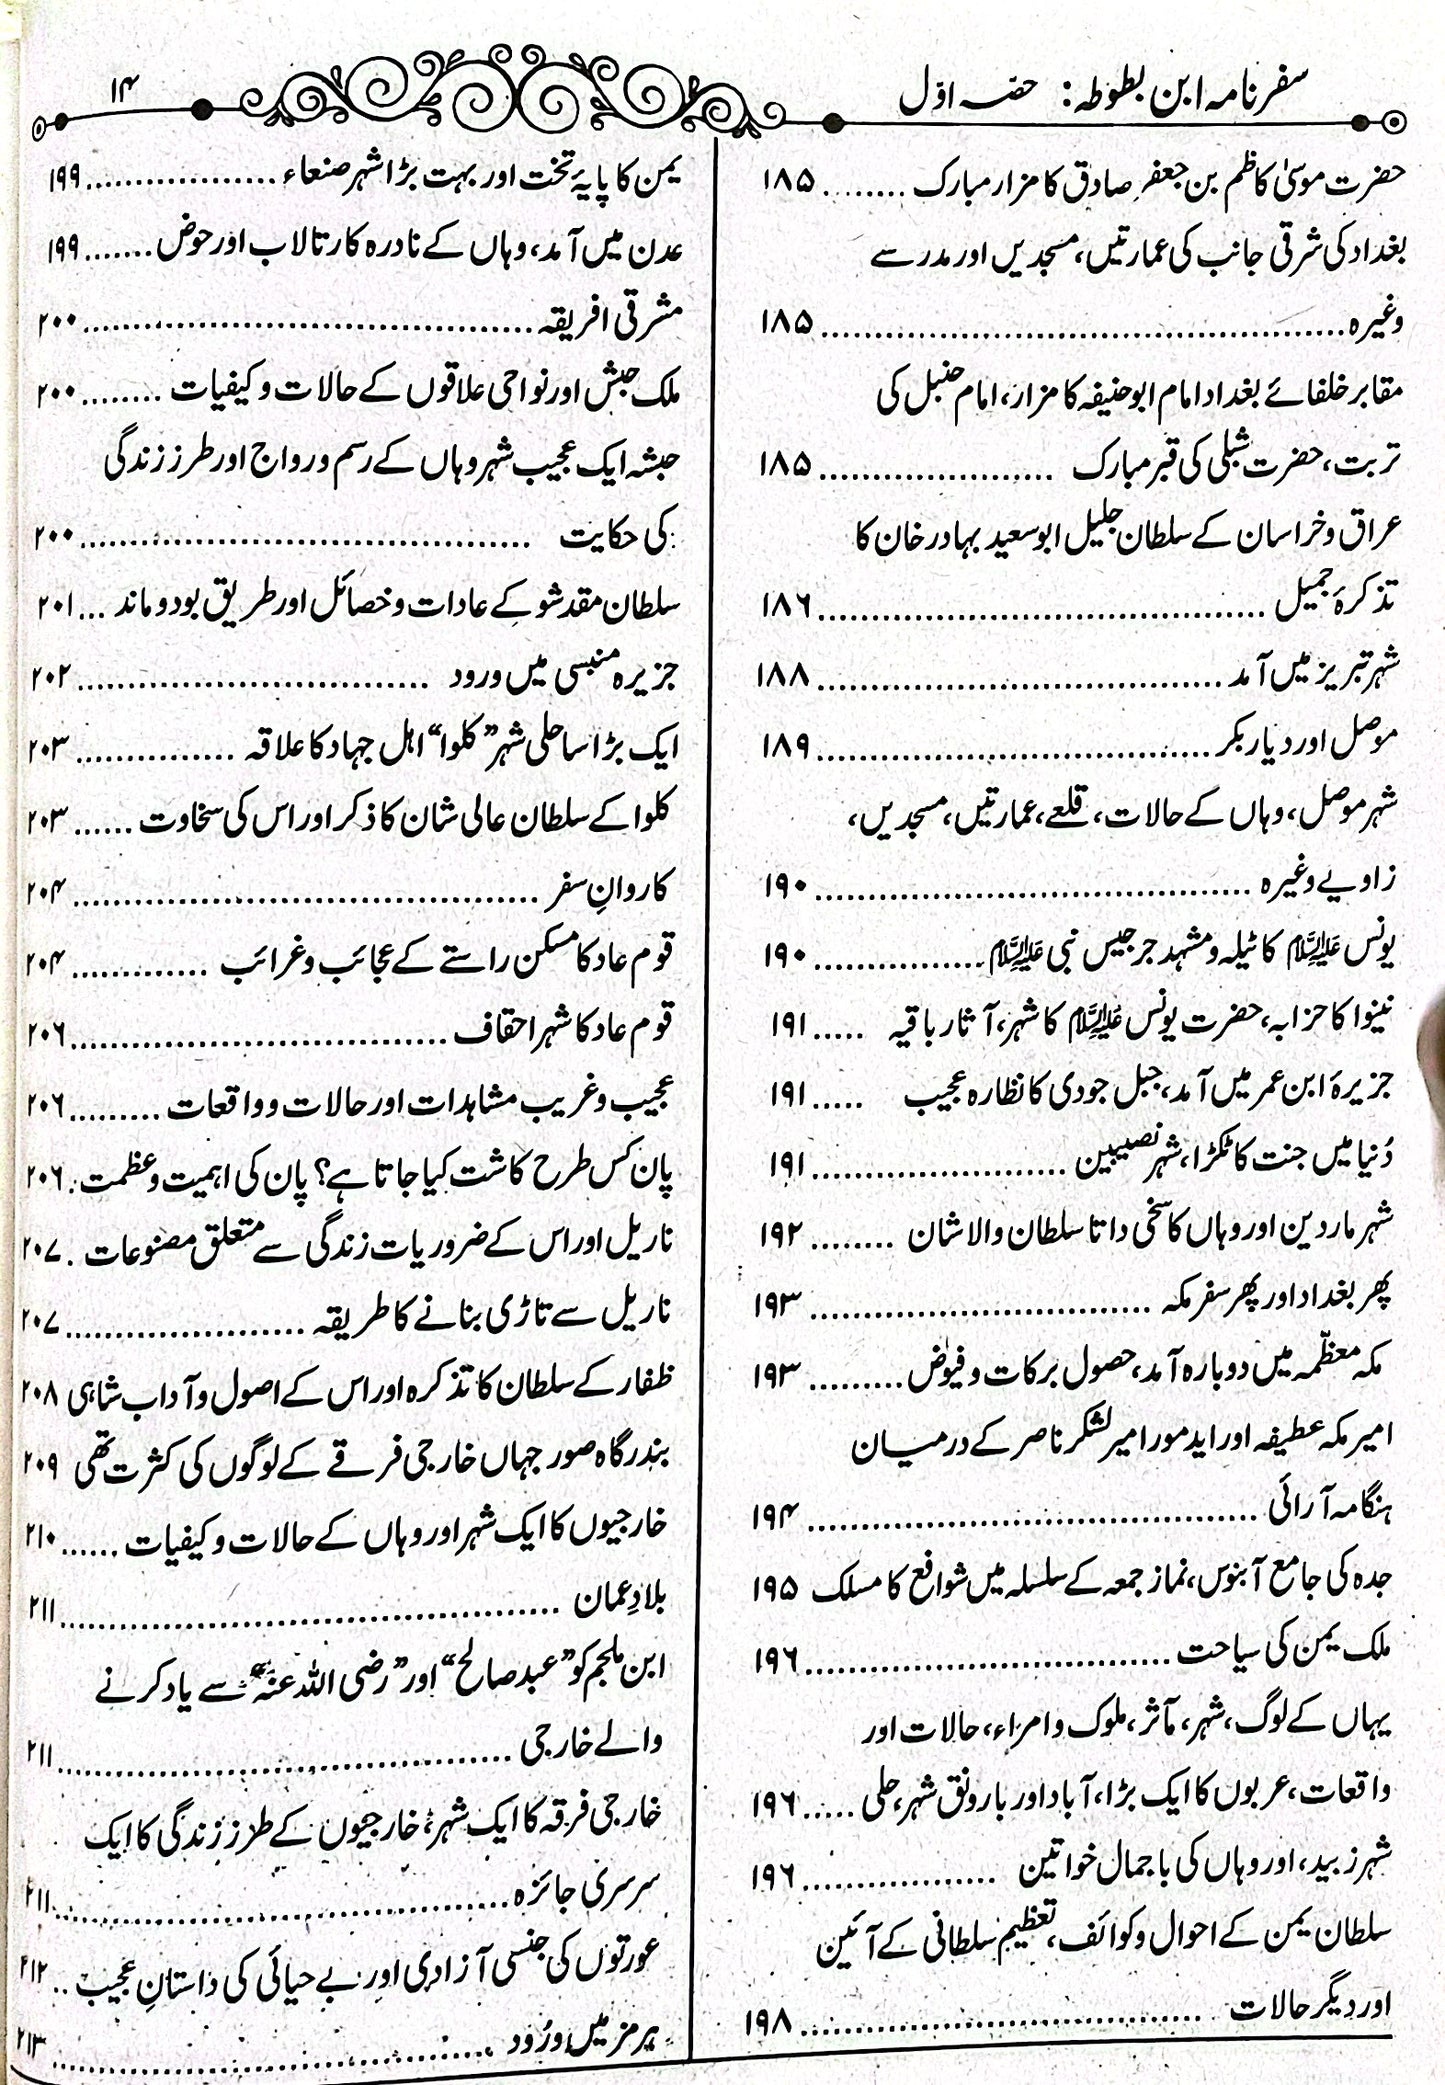 سفرنامہ ابن بطوطہ: حصہ اوّل
۱۴
حضرت موسیٰ کاظم بن جعفر صادق کا مزار مبارک ........ ۱۸۵
بغداد کی شرقی جانب کی عمارتیں، مسجدیں اور مدرسے
وغیرہ ........ ۱۸۵
مقابر خلفائے بغداد امام ابو حنیفہ کا مزار، امام حنبل کی
تربت، حضرت شبلی کی قبر مبارک ........ ۱۸۵
عراق و خراسان کے سلطان جلیل ابو سعید بہادر خان کا
تذکرۂ جمیل ........ ۱۸۶
شہر تبریز میں آمد ........ ۱۸۸
موصل اور دیار بکر ........ ۱۸۹
شہر موصل، وہاں کے حالات، قلعے، عمارتیں، مسجدیں،
زاویے وغیرہ ........ ۱۹۰
یونس علیہ السلام کا ٹیلہ و مشہد جرجیس نبی علیہ السلام ........ ۱۹۰
نینوا کا خرابہ، حضرت یونس علیہ السلام کا شہر، آثار باقیہ ..... ۱۹۱
جزیرۂ ابن عمر میں آمد، جبل جودی کا نظارہ عجیب ..... ۱۹۱
دُنیا میں جنت کا ٹکڑا، شہر نصیبین ........ ۱۹۱
شہر ماردین اور وہاں کا سخی داتا سلطان والا شان ........ ۱۹۲
پھر بغداد اور پھر سفر مکہ ........ ۱۹۳
مکہ معظّمہ میں دوبارہ آمد، حصول برکات و فیوض ........ ۱۹۳
امیر مکہ عطیفہ اور ایدمور امیر لشکر ناصر کے درمیان
ہنگامہ آرائی ........ ۱۹۴
جدہ کی جامع آبنوس، نماز جمعہ کے سلسلہ میں شوافع کا مسلک ۱۹۵
ملک یمن کی سیاحت ........ ۱۹۶
یہاں کے لوگ، شہر، مآثر، ملوک و امراء، حالات اور
واقعات، عربوں کا ایک بڑا، آباد اور بارونق شہر، حلی ..... ۱۹۶
شہر زبید، اور وہاں کی باجمال خواتین ........ ۱۹۶
سلطان یمن کے احوال و کوائف، تعظیم سلطانی کے آئین
اور دیگر حالات ........ ۱۹۸
یمن کا پایۂ تخت اور بہت بڑا شہر صنعاء ........ ۱۹۹
عدن میں آمد، وہاں کے نادرہ کار تالاب اور حوض ....... ۱۹۹
مشرقی افریقہ ........ ۲۰۰
ملک حبش اور نواحی علاقوں کے حالات و کیفیات ........ ۲۰۰
حبشہ ایک عجیب شہر وہاں کے رسم و رواج اور طرز زندگی
کی حکایت ........ ۲۰۰
سلطان مقدشو کے عادات و خصائل اور طریق بود و ماند ... ۲۰۱
جزیرہ منبسی میں ورود ........ ۲۰۲
ایک بڑا ساحلی شہر ”کلوا“ اہل جہاد کا علاقہ ........ ۲۰۳
کلوا کے سلطان عالی شان کا ذکر اور اس کی سخاوت ...... ۲۰۳
کاروانِ سفر ........ ۲۰۴
قوم عاد کا مسکن راستے کے عجائب و غرائب ........ ۲۰۴
قوم عاد کا شہر احقاف ........ ۲۰۶
عجیب و غریب مشاہدات اور حالات و واقعات ........ ۲۰۶
پان کس طرح کاشت کیا جاتا ہے؟ پان کی اہمیت و عظمت . ۲۰۶
ناریل اور اس کے ضروریات زندگی سے متعلق مصنوعات . ۲۰۷
ناریل سے تاڑی بنانے کا طریقہ ........ ۲۰۷
ظفار کے سلطان کا تذکرہ اور اس کے اصول و آداب شاہی ۲۰۸
بندرگاہ صور جہاں خارجی فرقے کے لوگوں کی کثرت تھی ۲۰۹
خارجیوں کا ایک شہر اور وہاں کے حالات و کیفیات ...... ۲۱۰
بلادِ عمان ........ ۲۱۱
ابن ملجم کو ”عبد صالح“ اور ”رضی اللہ عنہ“ سے یاد کرنے
والے خارجی ........ ۲۱۱
خارجی فرقہ کا ایک شہر، خارجیوں کے طرز زندگی کا ایک
سرسری جائزہ ........ ۲۱۱
عورتوں کی جنسی آزادی اور بے حیائی کی داستانِ عجیب .. ۲۱۲
ہرمز میں ورُود ........ ۲۱۳